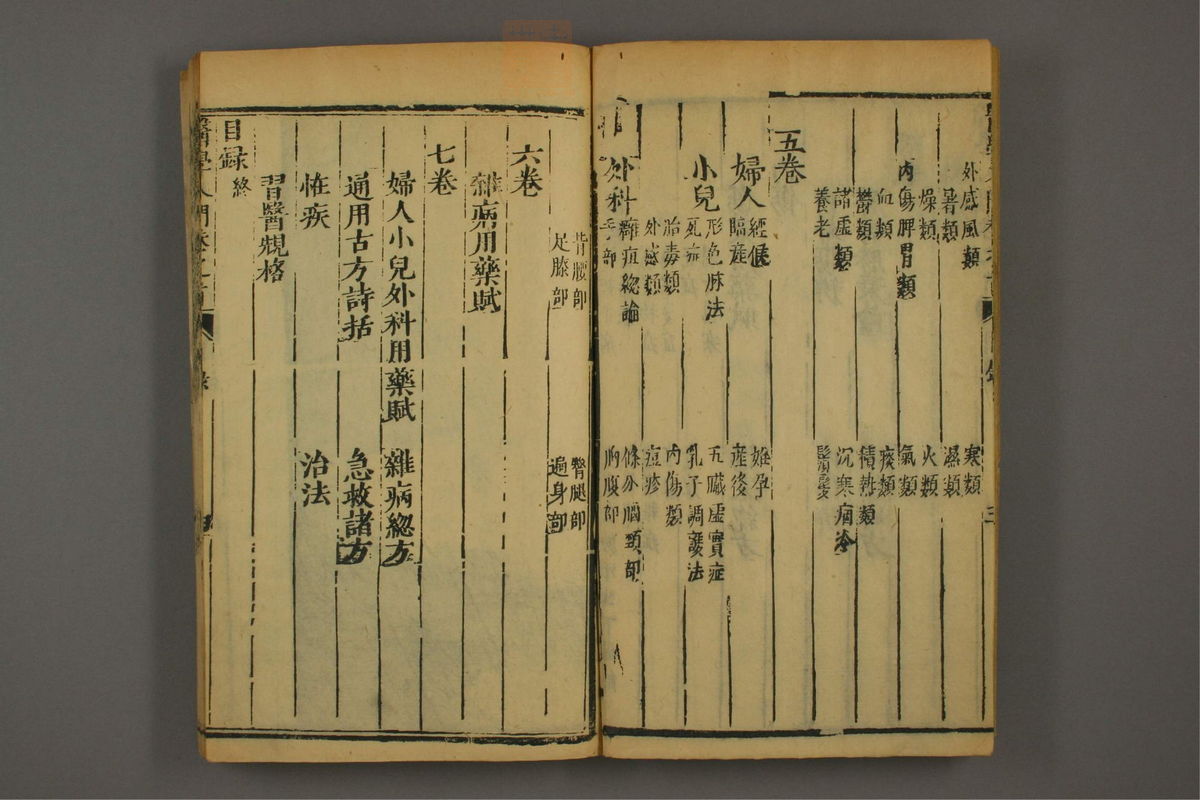 外感風類 寒類
暑類 濕類
燥類 火類
內傷脾胃類 氣類
血類 痰類
鬱類 積熱類
諸虛類 沉寒痼冷
養老
五卷
婦人 經候 姙孕
臨產 產後
小兒 形色脉法 五臟虛實症
死症 乳子調護法
胎毒類 內傷類
外感類 痘疹
外科 癰疽總論 條分腦頸部
手部 胸腹部
背腰部 臀腿部
足膝部 遍身部
六卷
雜病用藥賦
七卷
婦人小兒外科用藥賦 雜病總方
通用古方詩括 急救諸方
恠疾 治法
習醫規格
目錄終
醫學入門